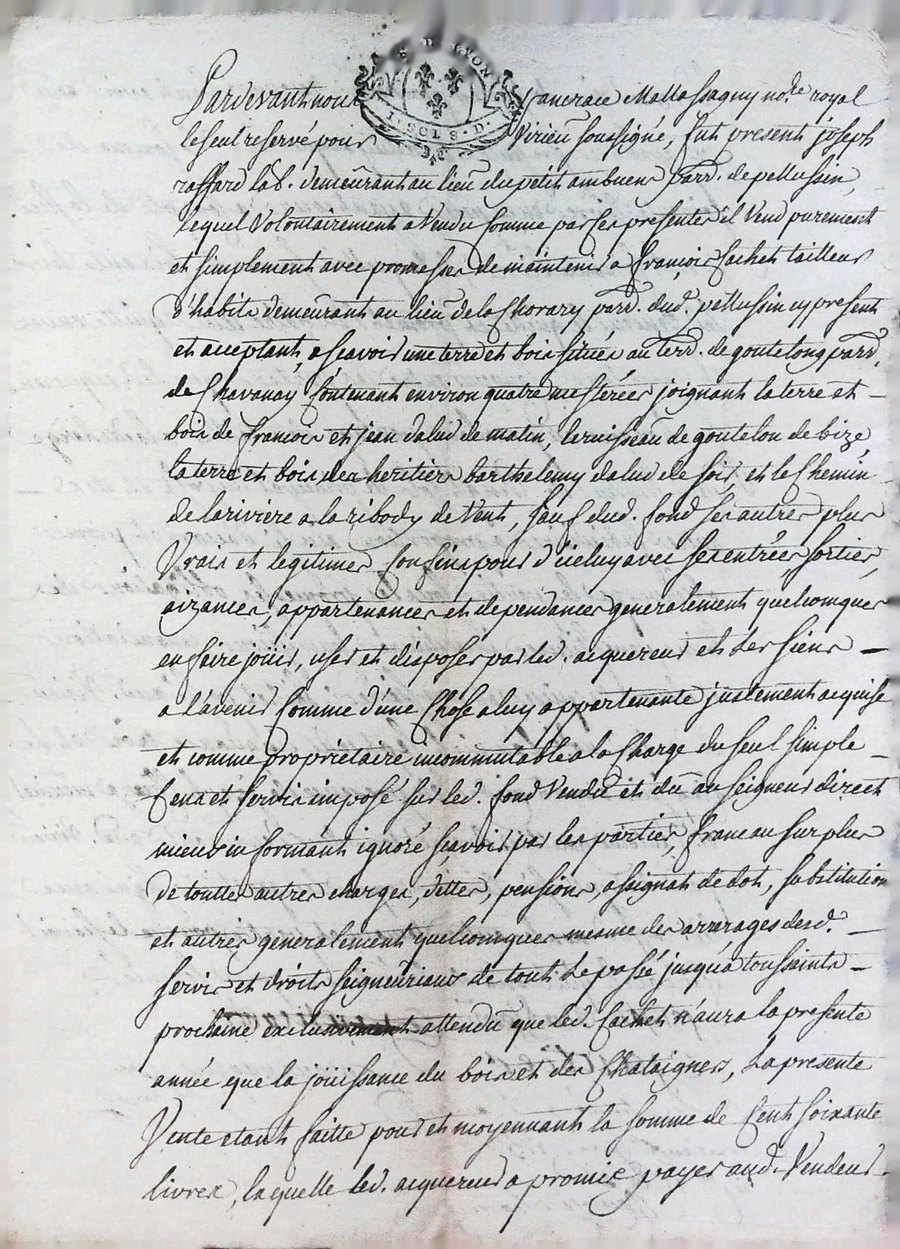 Pardevant nous Pancrace Mattassagny no.re royal
le seul reservé pour Virieu soussigné, fut present joseph
raffard lab. demeurant au lieu du petit ambuens parr. de pellussin,
lequel Volontairement a Vendu Comme par ses presentes il Vend purement
et simplement avec promesses de maintenir a françois Cachet tailleur
d'habits demeurant au lieu de la Chorary parr. dud. pellussin cy present
et acceptant, a scavoir une terre et bois situés au terr. de goutelong parr.
de Chavanay Contenant environ quatre mesterées joignant la terre et
bois de françois et jean dalud de matin, le ruisseau de goutelon de bize,
la terre et bois des heritiers barthelemy dalud de soir, et le Chemin
de la riviere a la ribody de Vent, sauf dud. fond ses autres plus
Vrais et legitimes Confins pour d'iceluy avec ses entrées, sorties,
aizances, appartenances et dependances generalement quelconques
en faire joüir, user et disposer par led. acquereur et les siens
a l'avenir Comme d'une Chôse a luy appartenante justement acquise
et comme propriétaire incommutable a la Charge du seul simple
Cens et servis imposé sur led. fond Vendu et dû au seigneur direct
mieux informant ignoré scavoir par les parties, franc au surplus
de toutte autres charges, dettes, pensions, assignat de dot, substitution
et autres generalement quelconques mesme des arrerages desd.
servis et droits seigneuriaux de tout le passé jusqu'a toussaints
prochaine exclusivement attendu que led. Cachet n'aura la presente
année que la joüissance du bois et des Chataigners, La presente
Vente etant faitte pour et moyennant la somme de Cent soixante
livres, laquelle led. acquereur a promis payer aud. Vendeur
DE LYON
1. SOL 8. D.